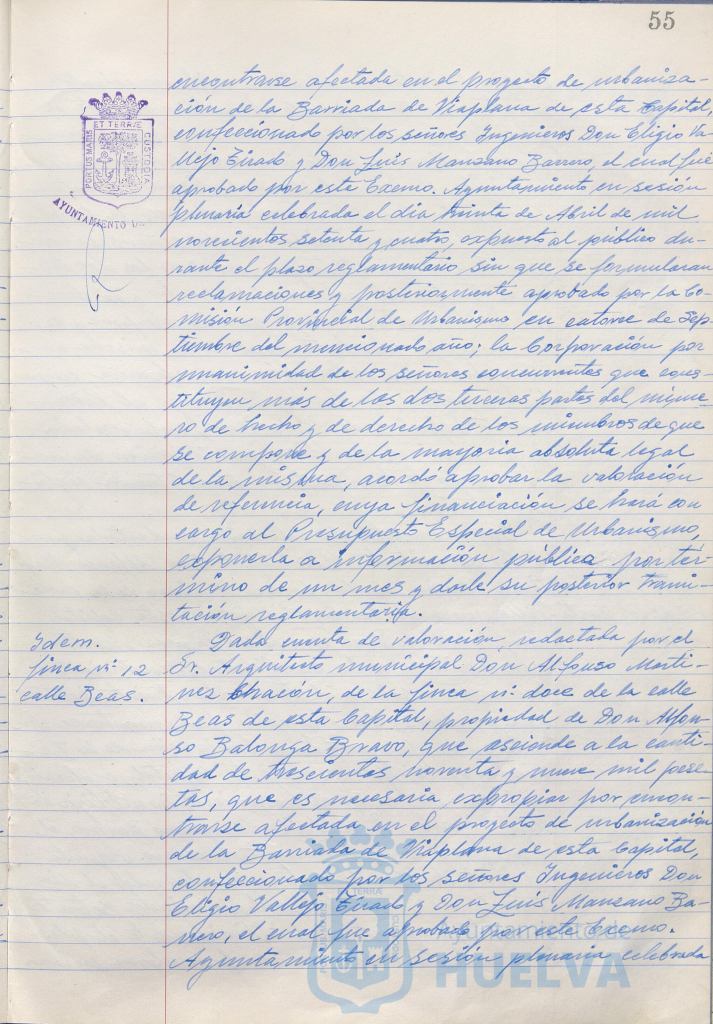 55
encontrarse afectada en el proyecto de urbaniza-
ción de la Barriada de Viaplana de esta Capital,
confeccionado por los señores Ingenieros Don Eligio Va-
llejo Tirado y Don Luis Manzano Barrero, el cual fué
aprobado por este Excmo. Ayuntamiento en sesión
plenaria celebrada el día treinta de Abril de mil
novecientos setenta y cuatro, expuesto al público du-
rante el plazo reglamentario sin que se formularan
reclamaciones y posteriormente aprobado por la Co-
misión Provincial de Urbanismo en catorce de Sep-
tiembre del mencionado año; la Corporación por
unanimidad de los señores concurrentes que cons-
tituyen más de las dos terceras partes del núme-
ro de hecho y de derecho de los miembros de que
se compone y de la mayoría absoluta legal
de la misma, acordó aprobar la valoración
de referencia, cuya financiación se hará con
cargo al Presupuesto Especial de Urbanismo,
exponerla a información pública por tér-
mino de un mes y darle su posterior trami-
tación reglamentaria.
Idem.
finca nº 12
calle Beas.
Dada cuenta de valoración, redactada por el
Sr. Arquitecto municipal Don Alfonso Martí-
nez Chacón, de la finca nº doce de la calle
Beas de esta Capital, propiedad de Don Alfon-
so Balonga Bravo, que asciende a la canti-
dad de trescientas noventa y nueve mil pese-
tas, que es necesaria expropiar por encon-
trarse afectada en el proyecto de urbanización
de la Barriada de Viaplana de esta Capital,
confeccionado por los señores Ingenieros Don
Eligio Vallejo Tirado y Don Luis Manzano Ba-
rrero, el cual fue aprobado por este Excmo.
Ayuntamiento en sesión plenaria celebrada
PORTUS MARIS ET TERRÆ CUSTODIA
AYUNTAMIENTO DE
ayuntamiento de
HUELVA